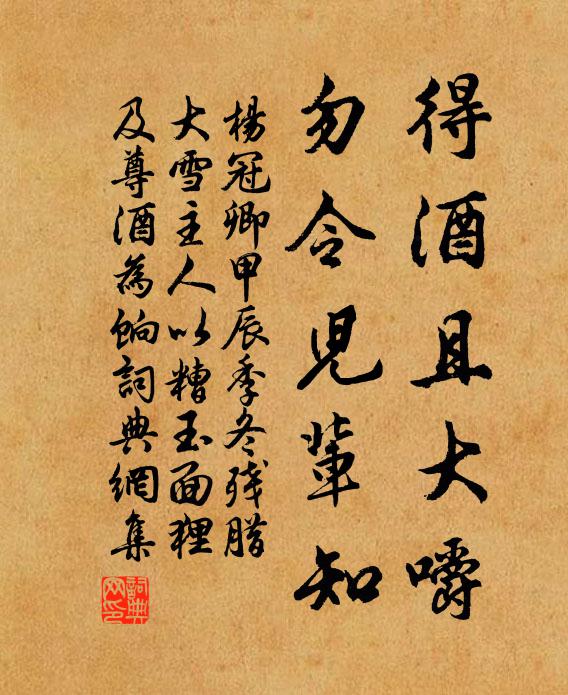 得酒且大嚼
勿令兒輩知
楊冠卿甲辰季冬殘腊
大雪主人以糟玉面狸
及尊酒為餉詞典網集
詞典網印